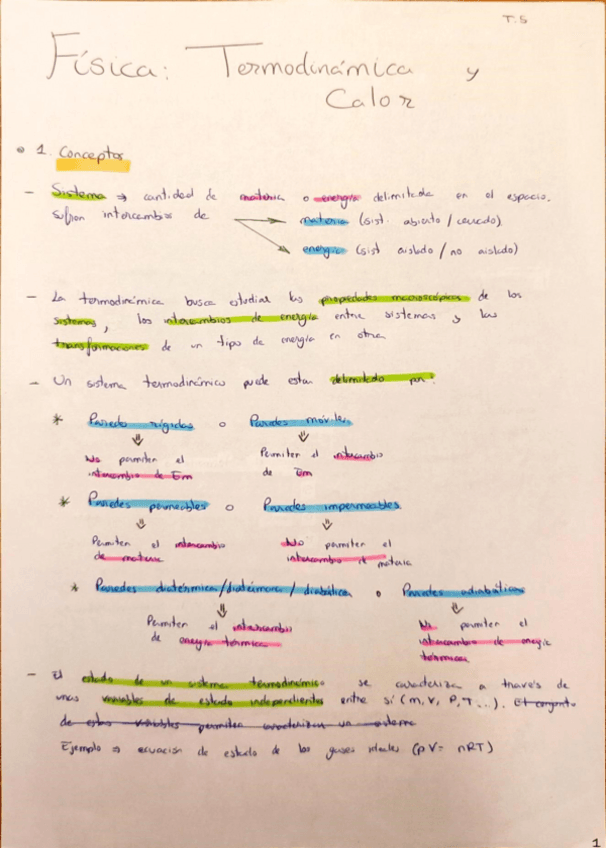 T.5
Física: Termodinámica y
Calor
1. Conceptos
- Sistema => cantidad de materia o energía delimitada en el espacio.
Sufren intercambios de materia (sist. abierto / cerrado)
energía (sist aislado / no aislado)
- La termodinámica busca estudiar las propiedades macroscópicas de los
sistemas, los intercambios de energía entre sistemas y las
transformaciones de un tipo de energía en otra
- Un sistema termodinámico puede estar delimitado por:
* Paredes rígidas o Paredes móviles
No permiten el Permiten el intercambio
intercambio de Em de Em
* Paredes permeables o Paredes impermeables
Permiten el intercambio No permiten el
de materia intercambio de materia
* Paredes diatérmica/diatérmana/diabática o Paredes adiabáticas
Permiten el intercambio No permiten el
de energía térmica intercambio de energía
térmica
- El estado de un sistema termodinámico se caracteriza a través de
unas variables de estado independientes entre sí (m, V, P, T...). El conjunto
de estas variables permiten caracterizar un sistema
Ejemplo => ecuación de estado de los gases ideales (pV = nRT)
1